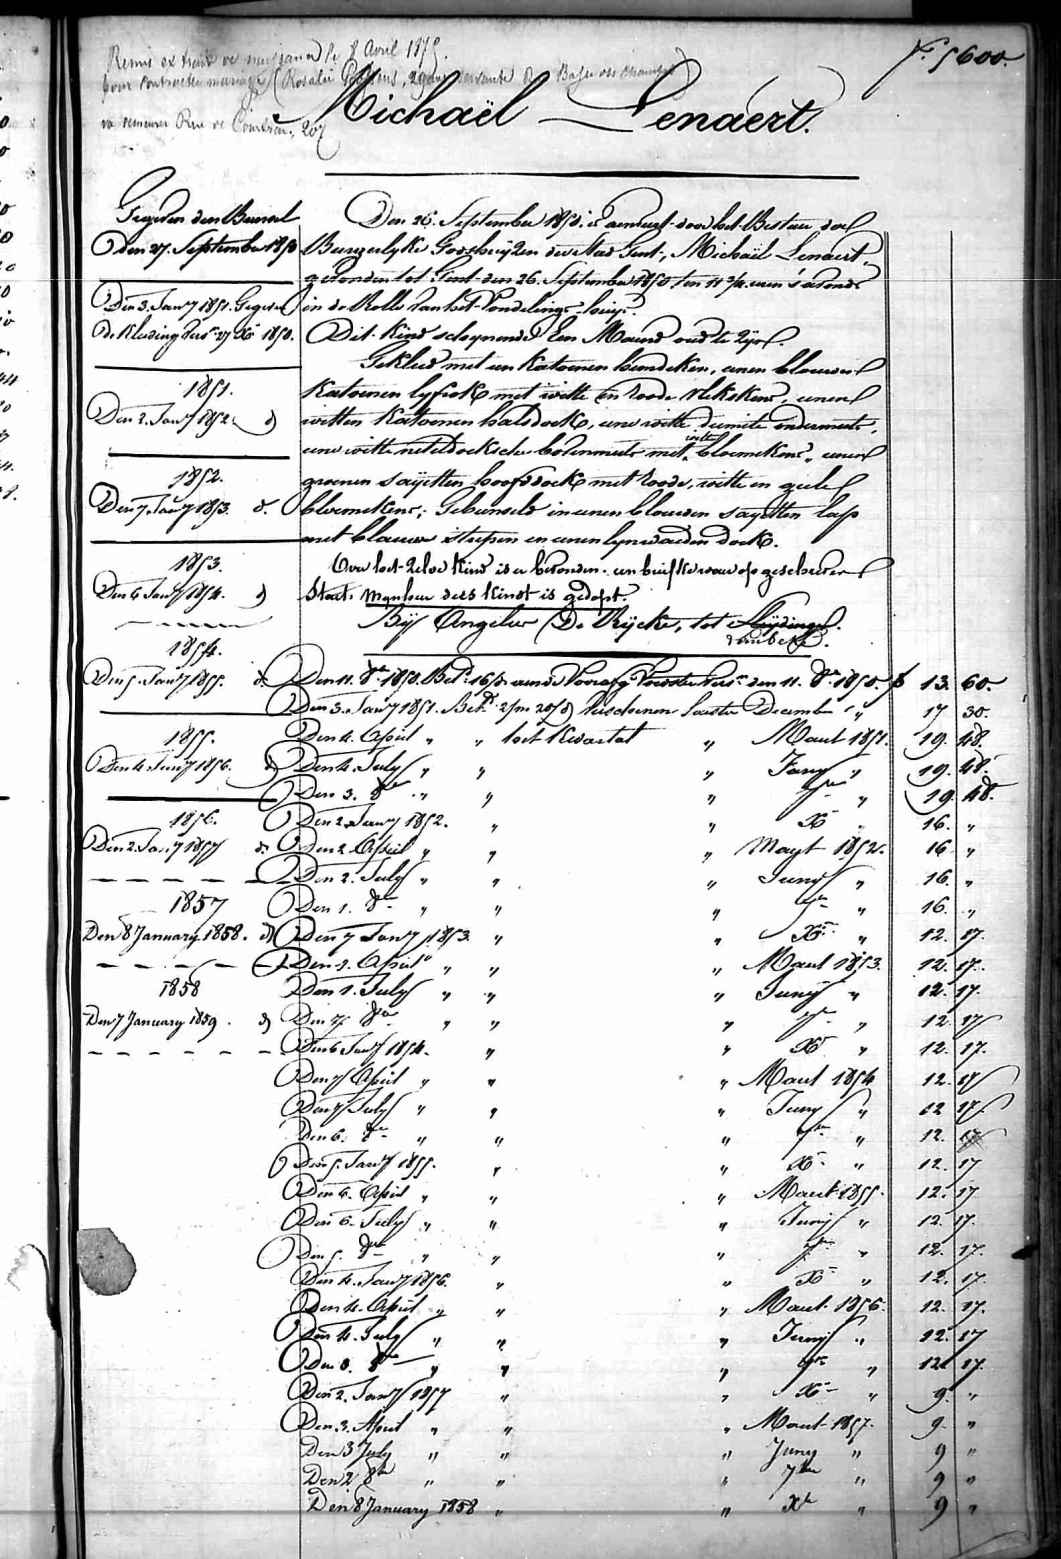 Remis extrait de naissance le 8 Avril 1875.
pour contracter mariage (Rosalie
rue 207
Nº 5600.
Michaël Lenaert.
Gegeven den Bundel
Den 27. September 1850
Den 3. Janry 1851. Gegeven
de Kleeding vers. 27 Xbr 1850.
1851.
Den 2. Janry 1852. d
1852.
Den 7. Janry 1853. d.
1853.
Den 6 Janry 1854. d
1854.
Den 5. Janry 1855. d.
1855.
Den 4. Janry 1856. d
1856.
Den 2. Janry 1857 d.
1857
Den 8 January 1858. d
1858
Den 7 January 1859. d
Den 26. September 1850. is aenveert door het Bestuer der
Burgerlyke Godshuyzen der Stad Gent, Michaël Lenaert,
gevonden tot Gent den 26. September 1850 ten 11 3/4 uren s'avonds
in de Rolle van het Vondelings-huys.
Dit Kind schynende Een Maend oud te zyn.
Gekleed met een Katoenen hemdeken, eenen blauwen
Katoenen lyfrok met witte en roode vlekskens, eenen
witten Katoenen halsdoek, eene witte dimitte ondermuts,
eene witte neteldoeksche bovenmuts met witte bloemekens, eenen
groenen sayetten hoofddoek met roode, witte en geele
bloemekens; Gebunseld in eenen blauwen sayetten lap
met blauwe strepen en eenen lynwaeden doek.
Over het zelve Kind is er bevonden een briefke waer op geschreven
staet: Mynheer dees Kindt is gedopt.
By Angelus De Rycke, tot Luydinge.
Den 11. 8br 1850. Bet. 16/3 11. 8br 1850. f 13. 60.
Den 3. Janry 1851. Bet. verschenen laeste December " 17 30.
Den 4. April " " het Kwartael " Maert 1851. 19. 48.
Den 4. July " " " Juny " 19. 48.
Den 3. 8br " " " 7br " 19. 48.
Den 2. Janry 1852. " " Xbr " 16. "
Den 2. April " " " Maert 1852. 16 "
Den 2. July " " " Juny " 16. "
Den 1. 8br " " " 7br " 16. "
Den 7 Janry 1853. " " Xbr " 12. 17.
Den 2. April " " " Maert 1853. 12. 17.
Den 1. July " " " Juny " 12. 17.
Den 7. 8br " " " 7br " 12 17
Den 6 Janry 1854. " " Xbr " 12. 17.
Den 7 April " " " Maert 1854 12. 17
Den 7 July " " " Juny " 12 17.
Den 6. 8br " " " 7br " 12. 17
Den 5. Janry 1855. " " Xbr " 12. 17
Den 6. April " " " Maert 1855. 12. 17
Den 6. July " " " Juny " 12. 17.
Den 5. 8br " " " 7br " 12. 17.
Den 4. Janry 1856. " " Xbr " 12. 17.
Den 4. April " " " Maert 1856. 12. 17.
Den 4. July " " " Juny " 12. 17
Den 8. 8br " " " 7br " 12 17.
Den 2. Janry 1857 " " Xbr " 9. "
Den 3. April " " " Maert 1857. 9. "
Den 3 July " " " Juny " 9 "
Den 2 8br " " " 7br " 9 "
Den 8 January 1858 " " Xbr " 9 "